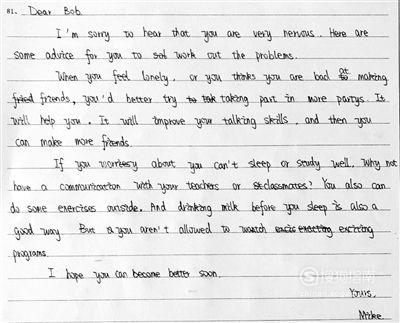 81. Dear Bob
I'm sorry to hear that you are very nervous. Here are
some advice for you to work out the problems.
When you feel lonely, or you thinks you are bad at making
friends, you'd better try taking part in more partys. It
will help you. It will improve your talking skills, and then you
can make more friends.
If you worry about you can't sleep or study well, Why not
have a communication with your teachers or classmates? You also can
do some exercises outside. And drinking milk before you sleep is also a
good way. But you aren't allowed to watch exciting
programs.
I hope you can become better soon.
Yours,
Mike